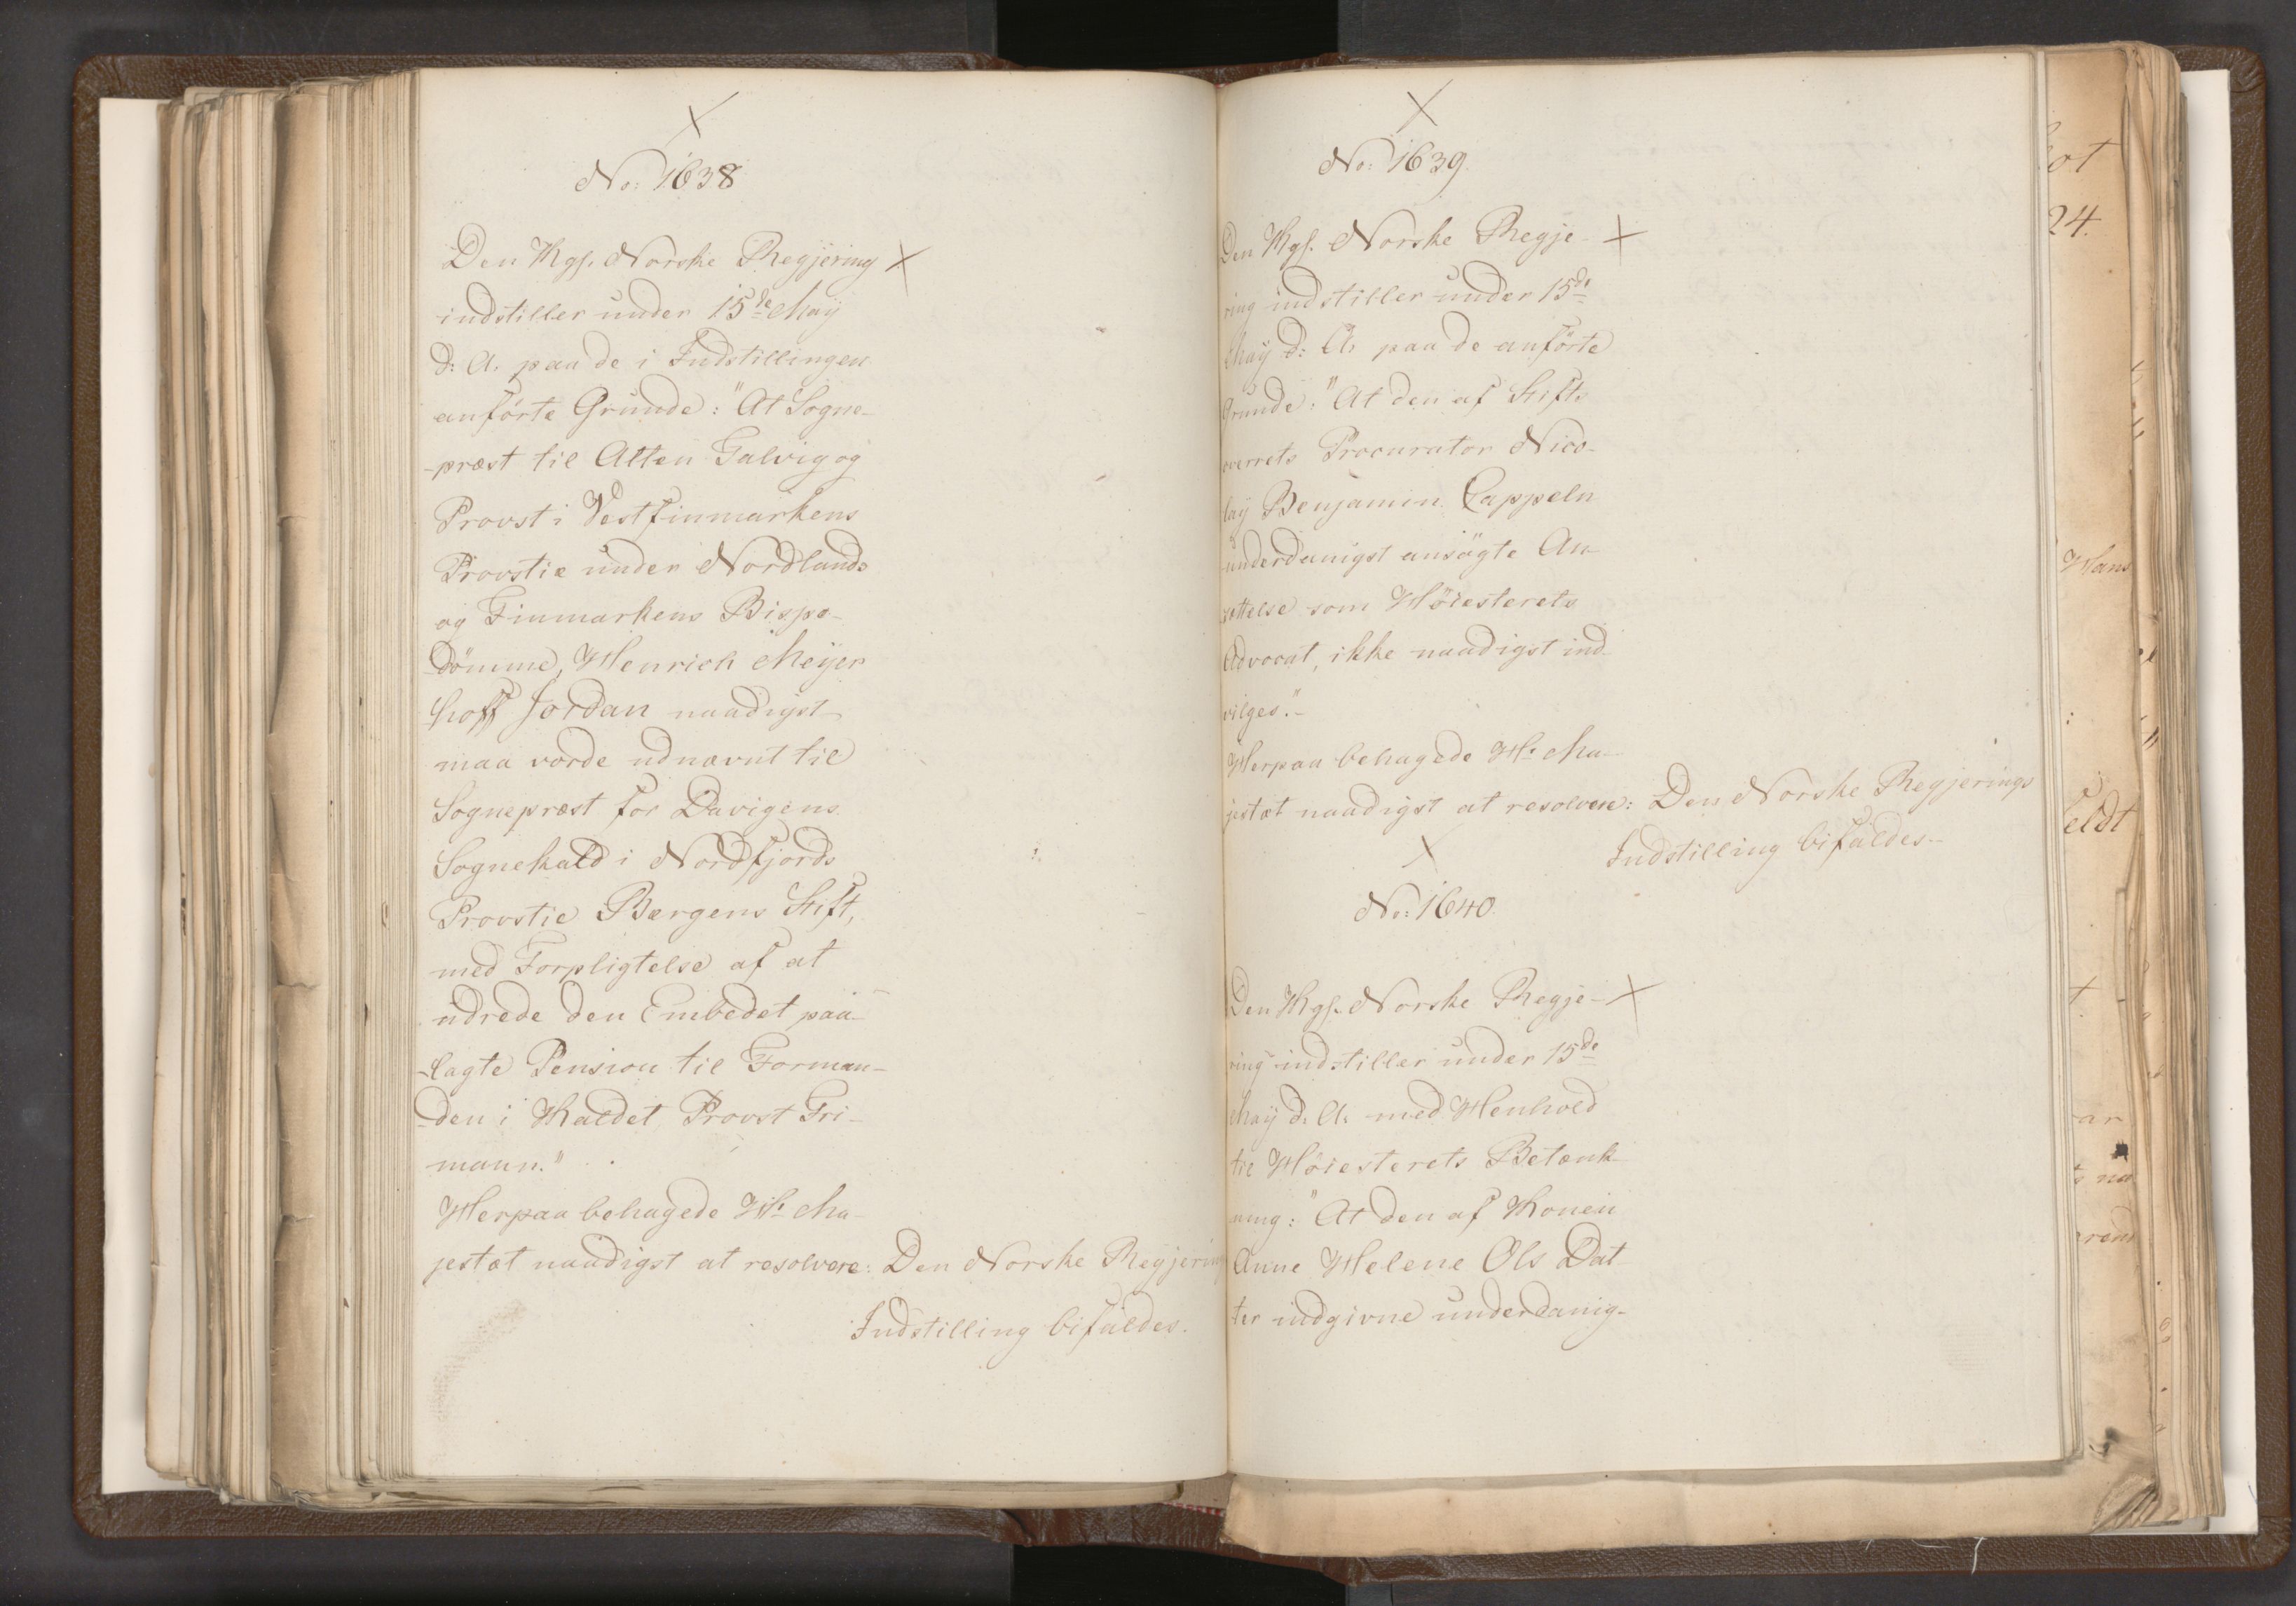 No: 1638
Den Kgl. Norske Regjering
indstiller under 15de May
d: A. paa de i Indstillingen
anförte Grunde: "At Sogne-
-præst til Alten Talvig og
Provst i Vestfinmarkens
Provstie under Nordlands
og Finmarkens Bispe-
dömme, Henrich Meyer
hoff Jordan naadigst
maa vorde udnævnt til
Sognepræst for Davigens
Sognekald i Nordfjords
Provstie Bergens Stift,
med Forpligtelse af at
udrede den Embedet paa-
-lagte Pension til Forman-
-den i Kaldet Provst Fri-
mann."
Herpaa behagede H: Ma-
jestæt naadigst at resolvere: Den Norske Regjerings
Indstilling bifaldes.
No: 1639
Den Kgl. Norske Regje-
ring indstiller under 15de
May d: A. paa de anförte
Grunde: "At den af Stifts
overrets Procurator Nico-
lay Benjamin Cappeln
underdanigst ansögte An-
sættelse som Höiesterets
Advocat, ikke naadigst ind-
vilges."-
Herpaa behagede H: Ma-
jestæt naadigst at resolvere: Den Norske Regjerings
Indstilling bifaldes.-
No: 1640
Den Kgl. Norske Regje-
ring indstiller under 15de
May d. A. med Henhold
til Höiesterets Betænk-
ning: "At den af Konen
Anne Helene Ols Dat-
ter indgivne underdanig-
24.
Hans